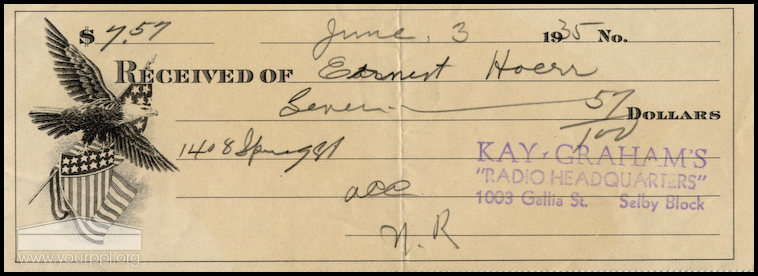 $ 7.57 June, 3 1935 No.
Received of Earnest Hoerr
Seven 57/100 Dollars
1408 Spring St
KAY GRAHAM'S
"RADIO HEADQUARTERS"
1003 Gallia St. Selby Block
acc.
N. R
www.yourppl.org